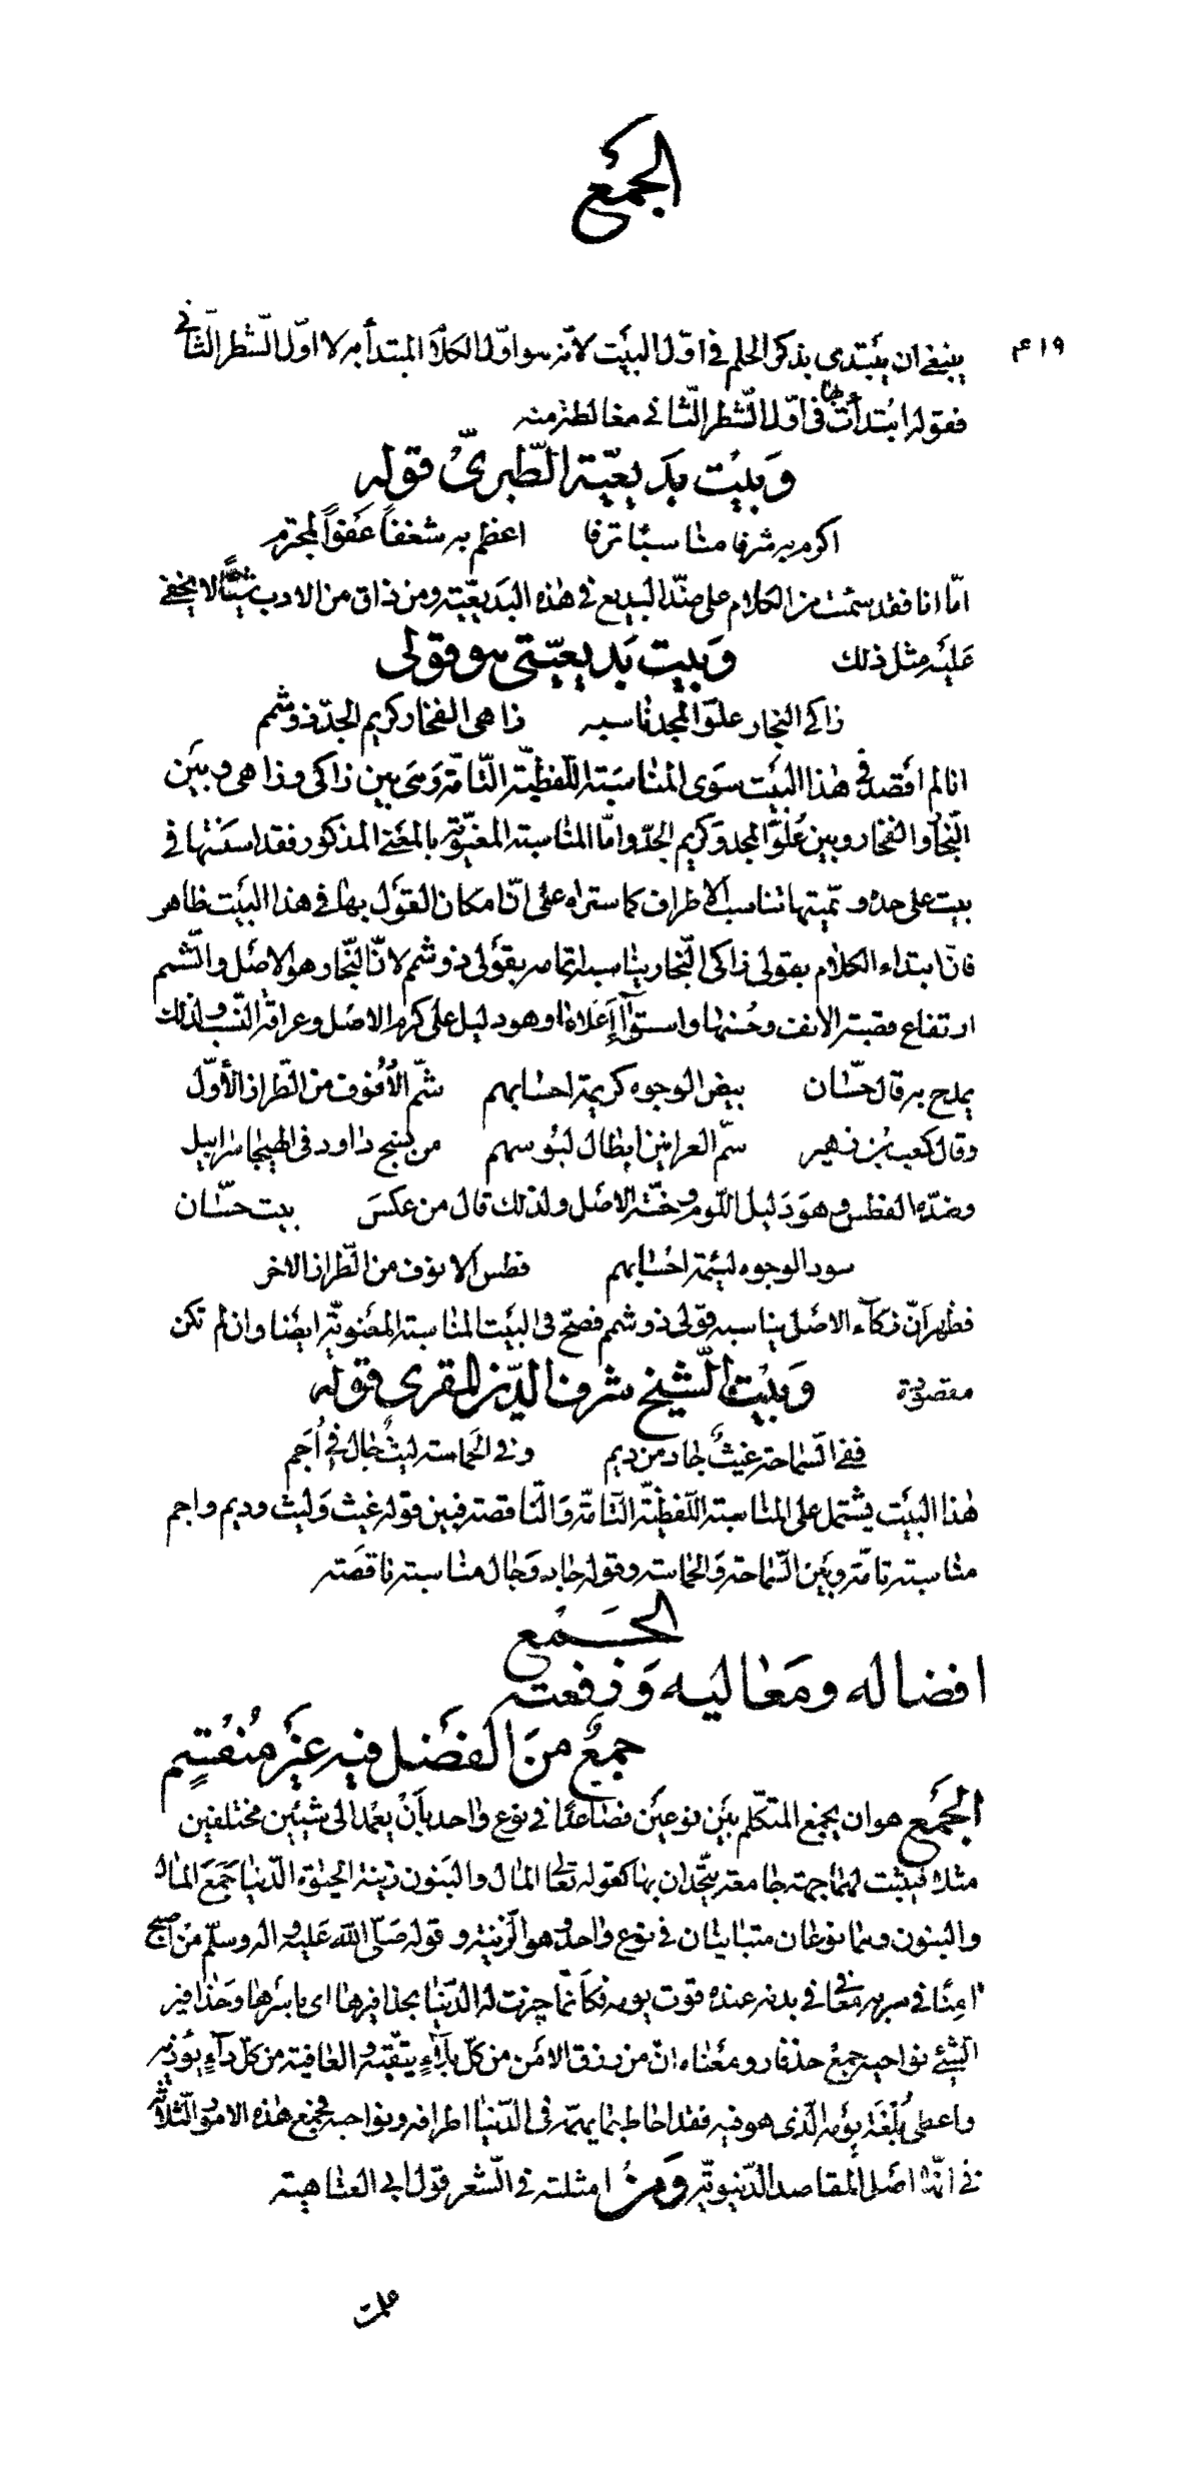 الجمع
٤١٩
ينبغى ان يبتدى بذكر الحلم فى اوّل البيت لانّه هو اوّل الكلام المبتدأ به لا اوّل الشّطر الثّانى
فقوله ابتدأت بها فى اوّل الشّطر الثّانى مغالطة منه
وبيت بديعيّة الطّبرىّ قوله
اكرم به شرفا مناسبا ترفا اعظم به شغفاً عفواً لمجترم
امّا انا فقد سئمت من الكلام على ضدّ البديع فى هذه البديعيّة ومن ذاق من الادب شيئا لا يخفى
عليه مثل ذلك وبيت بديعيّتى هو قولى
زاكى النجار علوّ المجد ناسبه زاهى الفخار كريم الجدّ ذو شمم
انا لم اقصد فى هذا البيت سوى المناسبة اللّفظيّة التّامّة وهى بين زاكى وزاهى وبين
النّجار والفخار وبين علوّ المجد وكريم الجدّ وامّا المناسبة المعنويّة بالمعنى المذكور فقد اسنتها فى
بيت على حده وتمّيتها تناسب الاطراف كما ستراه على انّ امكان القول بها فى هذا البيت ظاهر
فانّ ابتداء الكلام بقولى زاكى النّجار يناسب اتمامه بقولى ذو شمم لانّ النّجار هو الاصل والشّمم
ارتفاع قصبة الانف وحسنها واستوآء اعلاها وهو دليل على كرم الاصل وعراقة النّسب ولذلك
يمدح به قال حسّان بيض الوجوه كريمة احسابهم شمّ الأنوف من الطّراز الأوّل
وقال كعب بن زهير شمّ العرانين ابطال لبوسهم من نسج داود فى الهيجا سرابيل
وضدّه الفطس وهو دليل اللّوم وخسّة الاصل ولذلك قال من عكس بيت حسّان
سود الوجوه لئيمة احسابهم فطس الانوف من الطّراز الاخر
فظهر انّ زكآء الاصل يناسبه قولى ذو شمم فصحّ فى البيت المناسبة المعنويّة ايضا وان لم تكن
مقصودة وبيت الشّيخ شرف الدّين المقرى قوله
ففى السّماحة غيث جاد من ديم وفى الحماسة ليث جال فى اجم
هذا البيت يشتمل على المناسبة اللّفظيّة التّامّة والنّاقصة فبين قوله غيث وليث وديم واجم
مناسبة تامّة وبين السّماحة والحماسة وقوله جاد وجال مناسبة ناقصة
الجمع
افضاله ومعاليه ورفعته
جمع من الفضل فيه غير منقسم
الجمع هو ان يجمع المتكلّم بين نوعين فصاعدا فى نوع واحد بأن يعمد الى شيئين مختلفين
مثلا فيثبت لهما جهة جامعة يتّحدان بها كقوله تعالى المال والبنون زينة الحيوة الدّنيا جمع المال
والبنون وهما نوعان متباينان فى نوع واحد وهو الزّينة وقوله صلّى الله عليه واله وسلّم من اصبح
امنا فى سربه معافى فى بدنه عنده قوت يومه فكأنّما حيزت له الدّنيا بحذافيرها اى بأسرها وحذافير
الشّئ نواحيه جمع حذفار ومعناه انّ من رزق الامن من كلّ بلآء يتّقيه والعافية من كلّ دآء يؤذيه
واعطى بلغة يومه الّذى هو فيه فقد احاط بما يهمّه فى الدّنيا اطرافه ونواحيه فجمع هذه الامور الثّلاثة
فى انّها اصل المقاصد الدّنيويّة ومن امثلته فى الشّعر قول ابى العتاهية
علمت